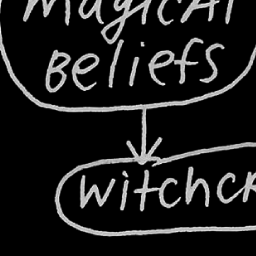 Magical
Beliefs
witchcr